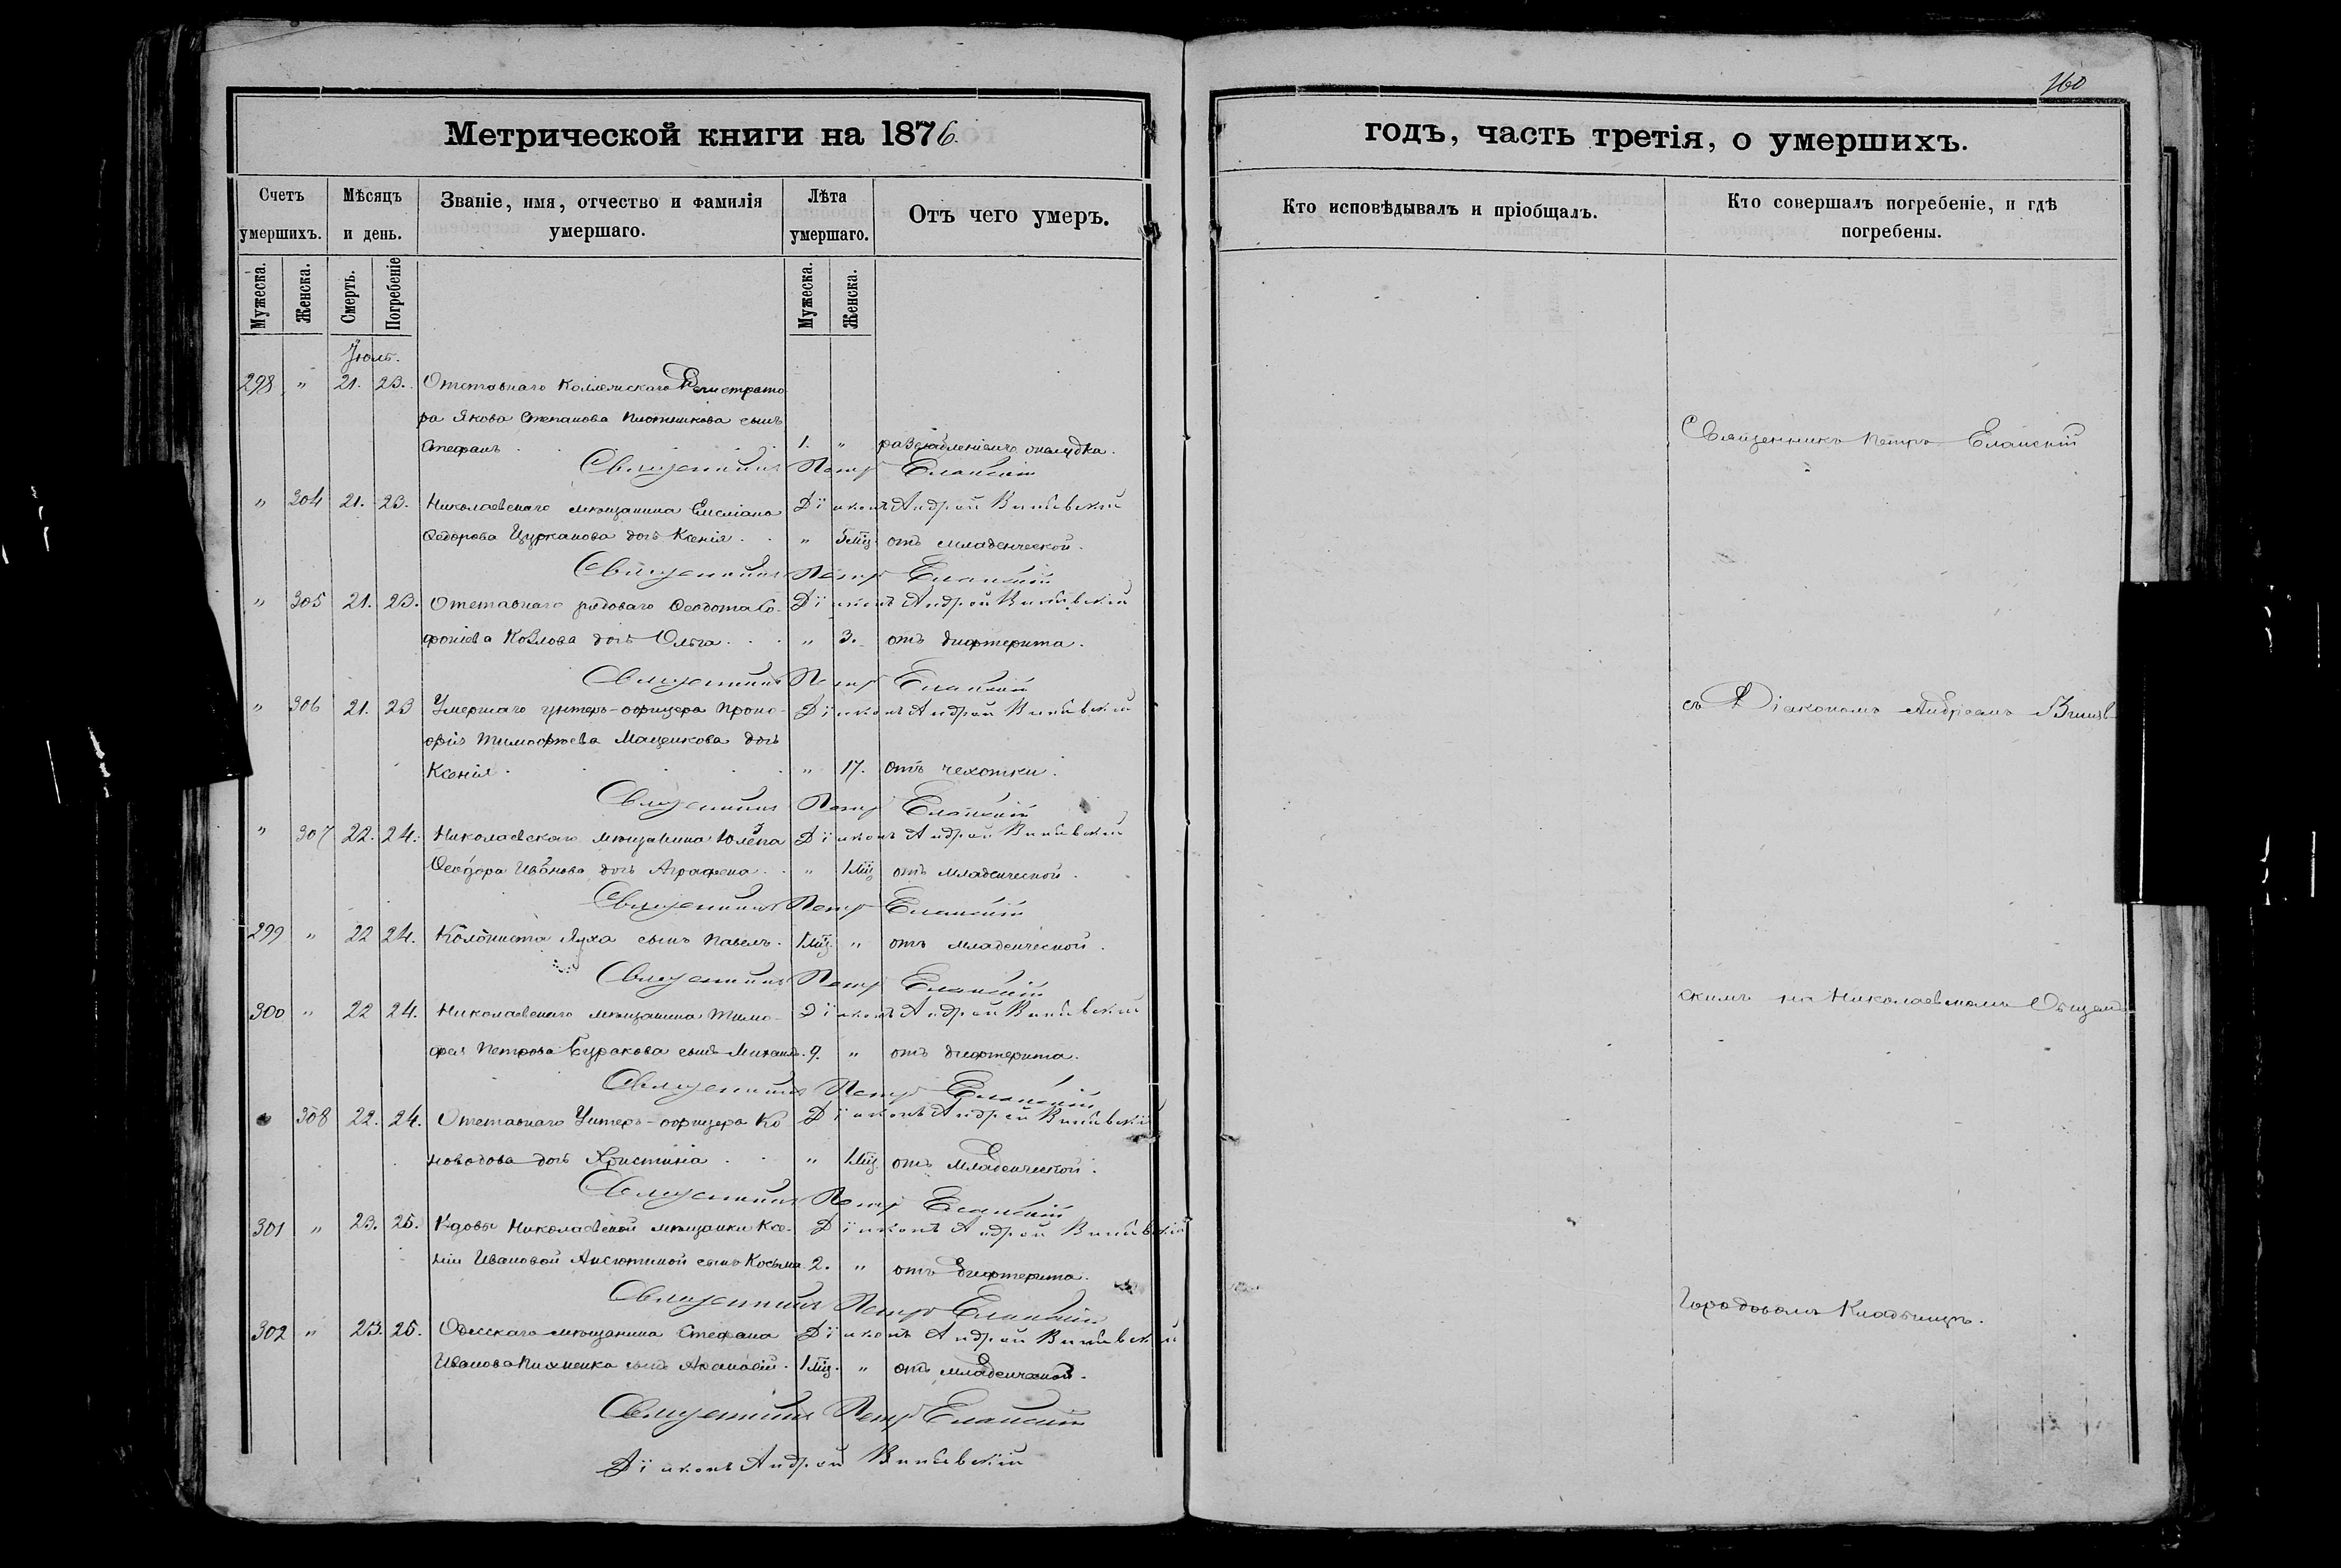 160
Метрической книги на 1876.
годъ, часть третія, о умершихъ.
Счетъ умершихъ.
Мѣсяцъ и день.
Званіе, имя, отчество и фамилія умершаго.
Лѣта умершаго.
Отъ чего умеръ.
Кто исповѣдывалъ и пріобщалъ.
Кто совершалъ погребеніе, и гдѣ погребены.
Мужеска. Женска. Смерть. Погребеніе Мужеска. Женска.
Іюль.
298 " 21. 23. Отставнаго Коллежскаго Регистрато
ра Якова Степанова Плотникова сынъ
Стефанъ 1. " разслабленіемъ желудка.
Священникъ Петръ Еланскій
" 304 21. 23. Николаевскаго мѣщанина Емеліана Діаконъ Андрей
Ѳедорова Цурканова дочь Ксенія. " 5 мц. отъ младенческой.
Священникъ Петръ Еланскій
" 305 21. 23. Отставнаго рядоваго Ѳеодота Со- Діаконъ Андрей
фоніева Козлова дочь Ольга. " 3. отъ дифтерита.
Священникъ Петръ Еланскій
" 306 21. 23 Умершаго унтеръ-офицера Проко- Діаконъ Андрей
фія Тимофѣева Маценкова дочь
Ксенія. " 17. отъ чахотки.
Священникъ Петръ Еланскій
" 307 22. 24. Николаевскаго мѣщанина Діаконъ Андрей
Ѳеодора Иванова дочь Аграфена. " 1 мц отъ младенческой.
Священникъ Петръ Еланскій
299 " 22 24. Колониста сынъ Павелъ. 1 мц. " отъ младенческой.
Священникъ Петръ Еланскій
300 " 22 24. Николаевскаго мѣщанина Тимо- Діаконъ Андрей
фея Петрова Буракова сынъ Михаилъ. 9. " отъ дифтерита.
Священникъ Петръ Еланскій
" 308 22. 24. Отставнаго Унтеръ-офицера Ко Діаконъ Андрей
новодова дочь Христина. " 1 мц. отъ младенческой.
Священникъ Петръ Еланскій
301 " 23. 25. Вдовы Николаевской мѣщанки Ксе- Діаконъ Андрей
ніи Ивановой сынъ Косьма 2. " отъ дифтерита.
Священникъ Петръ Еланскій
302 " 23. 25. Одесскаго мѣщанина Стефана Діаконъ Андрей
Иванова сынъ 1 мц. " отъ младенческой.
Священникъ Петръ Еланскій
Діаконъ Андрей
Священникъ Петръ Еланскій
съ Діакономъ Андреемъ
скимъ на Николаевскомъ
Городовомъ Кладбищѣ.